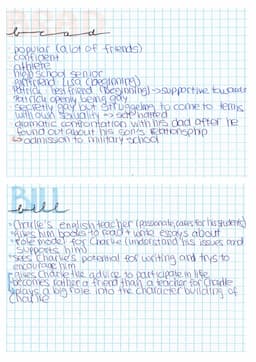 BRAD
brad
popular (a lot of friends)
confident
athlete
high school senior
girlfriend Lisa (beginning)
Patrick = best friend (beginning) → supportive towards
Patrick openly being gay
secretly gay but struggeling to come to terms
with own sexuality → self-hatred
dramatic confrontation with his dad after he
found out about his son's relationship
↳ admission to military school
BILL
bill
• Charlie's english teacher (passionate, cares for his students)
• gives him books to read + write essays about
• role model for Charlie (understand his issues and
supports him)
• sees Charlie's potential for writing and trys to
encourage him
gives Charlie the advice to participate in life
becomes rather a friend than a teacher for Charlie
plays a big role into the character building of
Charlie